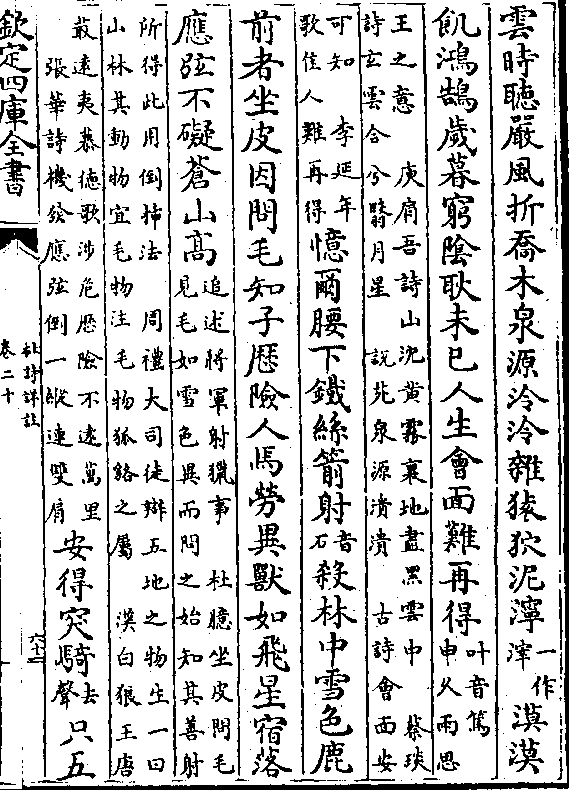 雲時聽嚴風折喬木泉源泠泠雜猿狖泥濘一作滓漠漠
飢鴻鵠歲暮窮陰耿未已人生會面難再得叶音篤申久雨思
王之意 庾肩吾詩山沈黃霧裏地盡黑雲中 蔡琰
詩玄雲合兮翳月星 說苑泉源潰潰 古詩會面安
可知 李延年歌佳人難再得憶爾腰下鐵絲箭射音石殺林中雪色鹿
前者坐皮因問毛知子歷險人馬勞異獸如飛星宿落
應弦不礙蒼山高追述將軍射獵事 杜臆坐皮問毛見毛如雪色異而問之始知其善射
所得此用倒插法 周禮大司徒辨五地之物生一曰
山林其動物宜毛物注毛物狐貉之屬 漢白狼王唐
菆遠夷慕德歌涉危歷險不遠萬里
張華詩機發應弦倒一縱連雙肩安得突騎去聲只五
欽定四庫全書
杜詩詳註
卷二十
六十二